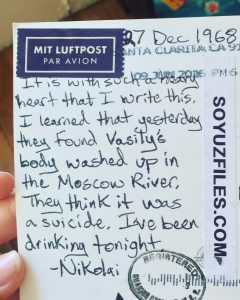 27 Dec 1968
MIT LUFTPOST
PAR AVION
SANTA CLARITA CA 913
09 JUN 2016 PM 6
It is with such a heavy
heart that I write this.
I learned that yesterday
they found Vasity's
body washed up in
the Moscow River.
They think it was
a suicide. I've been
drinking tonight.
-Nikolai
SOYUZFILES.COM
REGISTERED